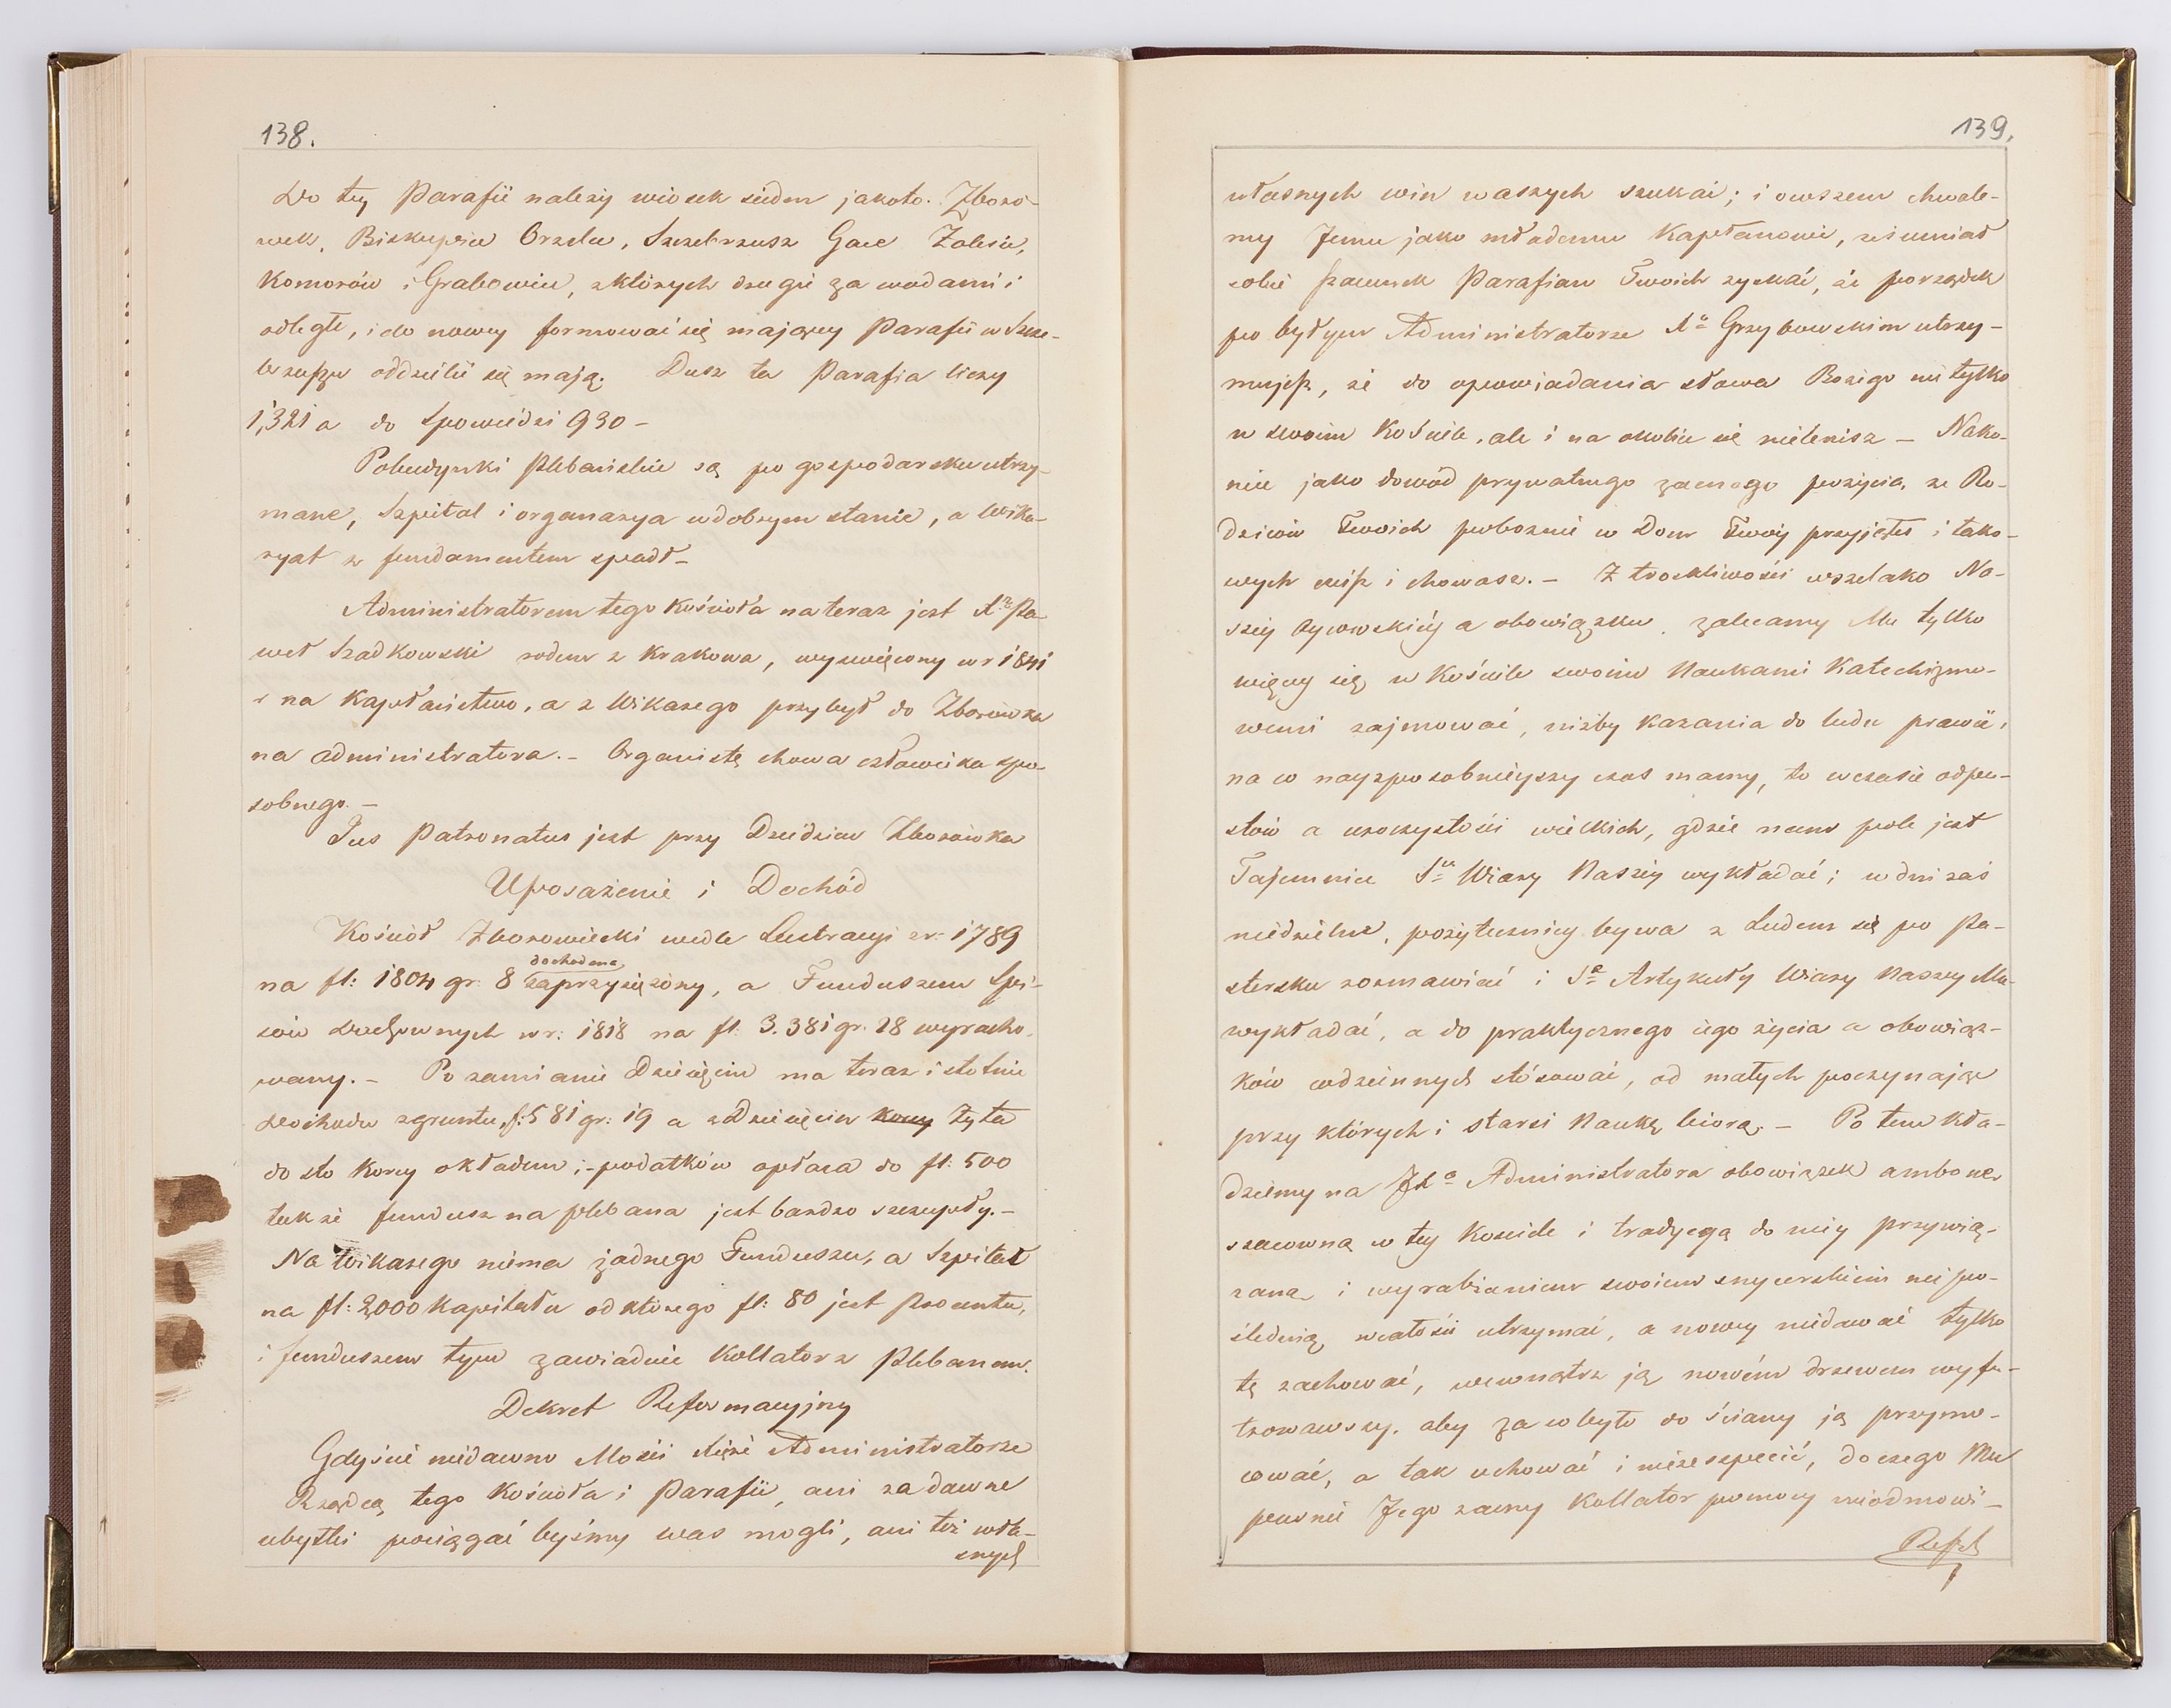 138.
Do tey Parafii należy wiosek siedm jakoto. Zboró-
wek, Biskupice Orzelec, Szczebrzusz Gace Zalesie,
Komorów i Grabowiec, z których drugie za wodami i
odległe, i do nowey formować się maiącey Parafii w Szcze-
brzuszu oddzielić się mają. Dusz ta Parafia liczy
1,321 a do Spowiedzi 930 –
Pobudynki Plebańskie są po gospodarsku utrzy-
mane, Szpital i organarya w dobrym stanie, a Wika-
ryat z fundamentem spadł –
Administratorem tego Kościoła na teraz jest X. Pa-
weł Szadkowski rodem z Krakowa, wyswięcony w r 1841
na kapłaństwo, a z Wikarego przybył do Zborówka
na administratora. – Organistę chowa człowieka spo-
sobnego. –
Jus Patronatus jest przy Dziedzicu Zborówka
Uposażenie i Dochód
Kościół Zborowiecki wedle Lustracyi z r: 1789
dochodem
na fl: 1804 gr: 8 zaprzysiężony, a Funduszem Spi-
sów duchownych w r: 1818 na fl 3.381 gr. 28 wyracho-
wany. – Po zamianie Dziesięcin ma teraz istotnie
dochodu z gruntu, fl: 581 gr: 19 a z Dziesięcin Korcy Żyta
do sto Korcy okładem; – podatków opłaca do fl: 500
tak że fundusz na plebana jest bardzo szczupły. –
Na Wikarego niema żadnego Funduszu, a Szpital
na fl: 2,000 Kapitału od którego fl: 80 jest Procentu,
i funduszem tym zawiaduie Kollator z Plebanem.
Dekret Reformacyjny
Gdyście niedawno Mości Xięże Administratorze
Rządcą tego Kościoła i Parafii, ani za dawne
ubytki pociągać byśmy was mogli, ani też wła-
snych
139.
własnych win waszych szukać; i owszem chwale-
my Jemu jako młodemu Kapłanowi, że umiał
sobie szacunek Parafian Twoich zyskać, że porządek
po byłym Administratorze X. Grzybowskim utrzy-
mujesz, że do opowiadania słowa Bożego nie tylko
w swoim Kościele, ale i na okolicę się nielenisz – Nako-
niec jako dowód prywatnego zacnego pożycia, że Ro-
dziców Twoich pobożnie w Dom Twóy przyjąłeś i tako-
wych czcisz i chowasz. – Z troskliwości wszelako Na-
széy Oycowskiéy a obowiązku, zalecamy Mu tylko
więcey się w Kościele swoim Naukami Katechizmo-
wemi zajmować, niżby kazania do ludu prawić,
na co naysposobnieyszy czas mamy, to w czasie odpu-
stów a uroczystości wielkich, gdzie nam pole jest
Tajemnice S. Wiary Naszéy wykładać; w dni zaś
niedzielne, pożyteczniey bywa z Ludem się po Pa-
stersku rozmawiać i S. Artykuły Wiary Naszey Mu
wykładać, a do praktycznego iego życia a obowiąz-
ków codziennych stósować, od małych poczynając
przy których i starsi Naukę biorą. – Po tem Kła-
dziemy na JX. Administratora obowiązek ambonę
szacowną w tey Kosciele i tradycyą do niéy przywią-
zaną i wyrabianiem swoiem snycerskiem nie po-
ślednią w całości utrzymać, a nowey niedawać tylko
tę zachować, wewnątrz ją nowém drzewem wyfu-
trowawszy, aby za co było do ściany ją przymo-
cować, a tak uchować i niezeszpecić, do czego Mu
pewnie Jego zacny Kollator pomocy nieodmówi –